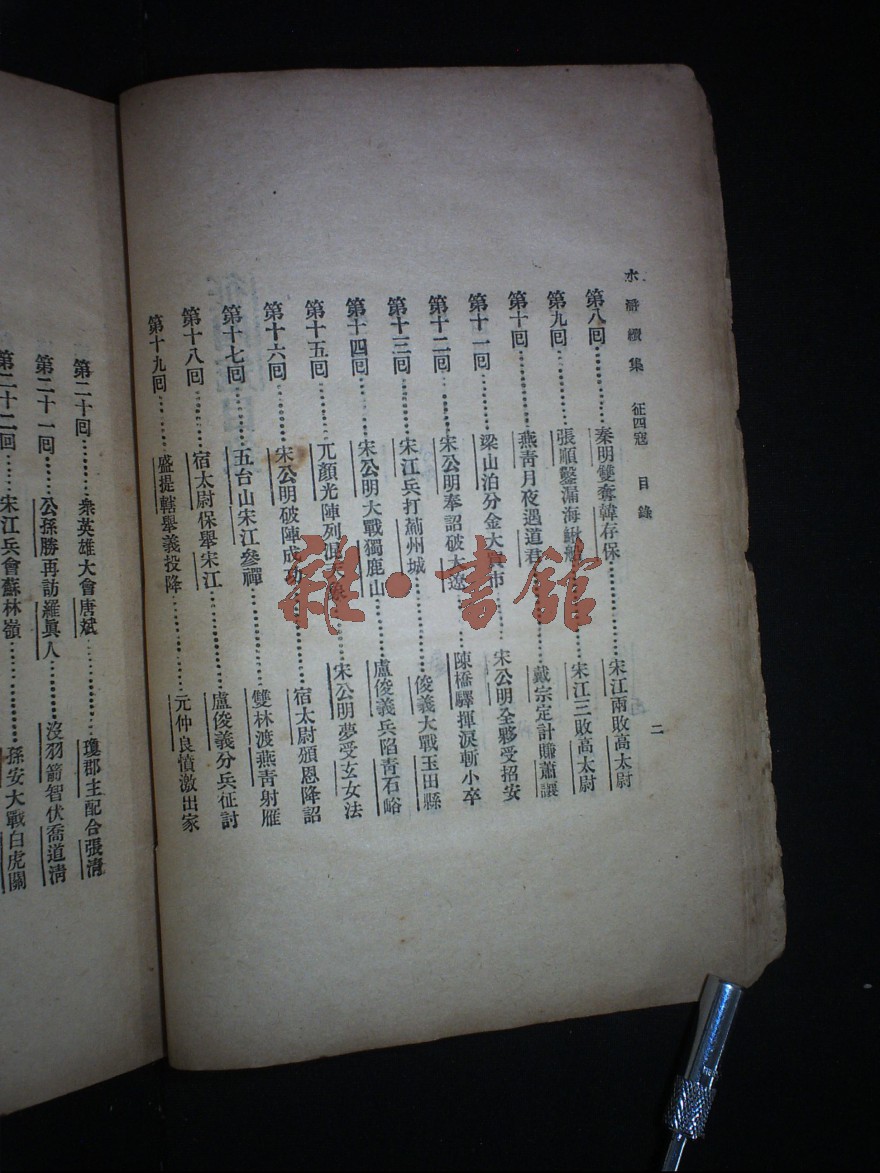 水滸續集 征四寇 目錄 二
第八回……秦明雙奪韓存保……宋江兩敗高太尉
第九回……張順鑿漏海鰍船……宋江三敗高太尉
第十回……燕青月夜遇道君……戴宗定計賺蕭讓
第十一回……梁山泊分金大買市……宋公明全夥受招安
第十二回……宋公明奉詔破大遼……陳橋驛揮淚斬小卒
第十三回……宋江兵打薊州城……俊義大戰玉田縣
第十四回……宋公明大戰獨鹿山……盧俊義兵陷青石峪
第十五回……兀顏光陣列混天象……宋公明夢受玄女法
第十六回……宋公明破陣成功……宿太尉頒恩降詔
第十七回……五台山宋江參禪……雙林渡燕青射雁
第十八回……宿太尉保舉宋江……盧俊義分兵征討
第十九回……盛提轄舉義投降……元仲良憤激出家
第二十回……衆英雄大會唐斌……瓊郡主配合張淸
第二十一回……公孫勝再訪羅眞人……沒羽箭智伏喬道淸
第二十二回……宋江兵會蘇林嶺……孫安大戰白虎關
雜·書館